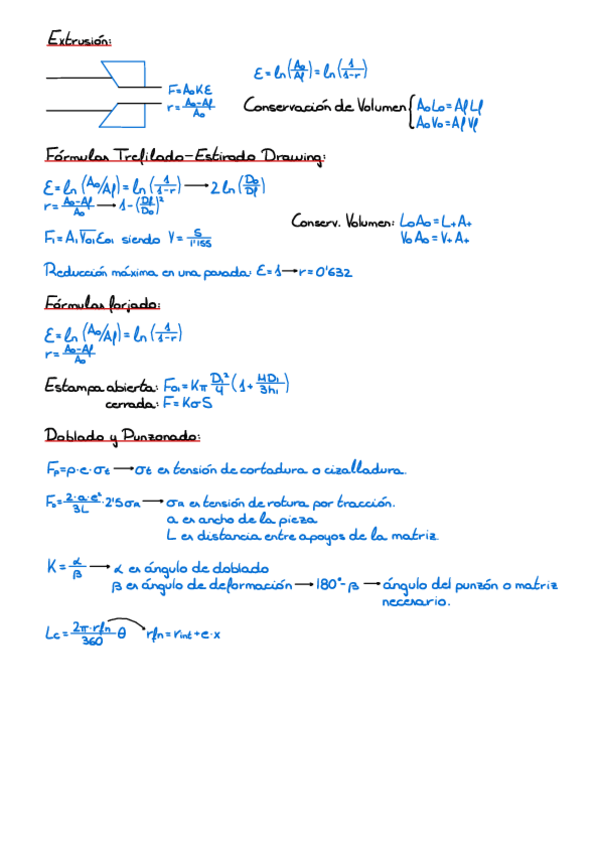 Extrusión:
F=A₀KE
r=(A₀-Af)/A₀
ε=ln(A₀/Af)=ln(1/(1-r))
Conservación de Volumen { A₀L₀=AfLf
A₀V₀=AfVf
Fórmulas Trefilado-Estirado Drawing:
ε=ln(A₀/Af)=ln(1/(1-r))→2ln(D₀/Df)
r=(A₀-Af)/A₀→1-(Df/D₀)²
Conserv. Volumen: L₀A₀=L₊A₊
V₀A₀=V₊A₊
F₁=A₁Y̅₀₁ε₀₁ siendo Y=S/1'155
Reducción máxima en una pasada: ε=1→r=0'632
Fórmulas forjado:
ε=ln(A₀/Af)=ln(1/(1-r))
r=(A₀-Af)/A₀
Estampa abierta: F₀₁=Kπ D₁²/4 (1+ MD₁/3h₁)
cerrada: F=KσS
Doblado y Punzonado:
Fp=p·e·σt→σt es tensión de cortadura o cizalladura.
=(2·a·e²)/3L·2'5σn→σn es tensión de rotura por tracción.
a es ancho de la pieza
L es distancia entre apoyos de la matriz.
K=α/β→α es ángulo de doblado
β es ángulo de deformación→180°-β→ángulo del punzón o matriz
necesario.
Lc=(2π·rfn)/360·θ rfn=rint+e·x